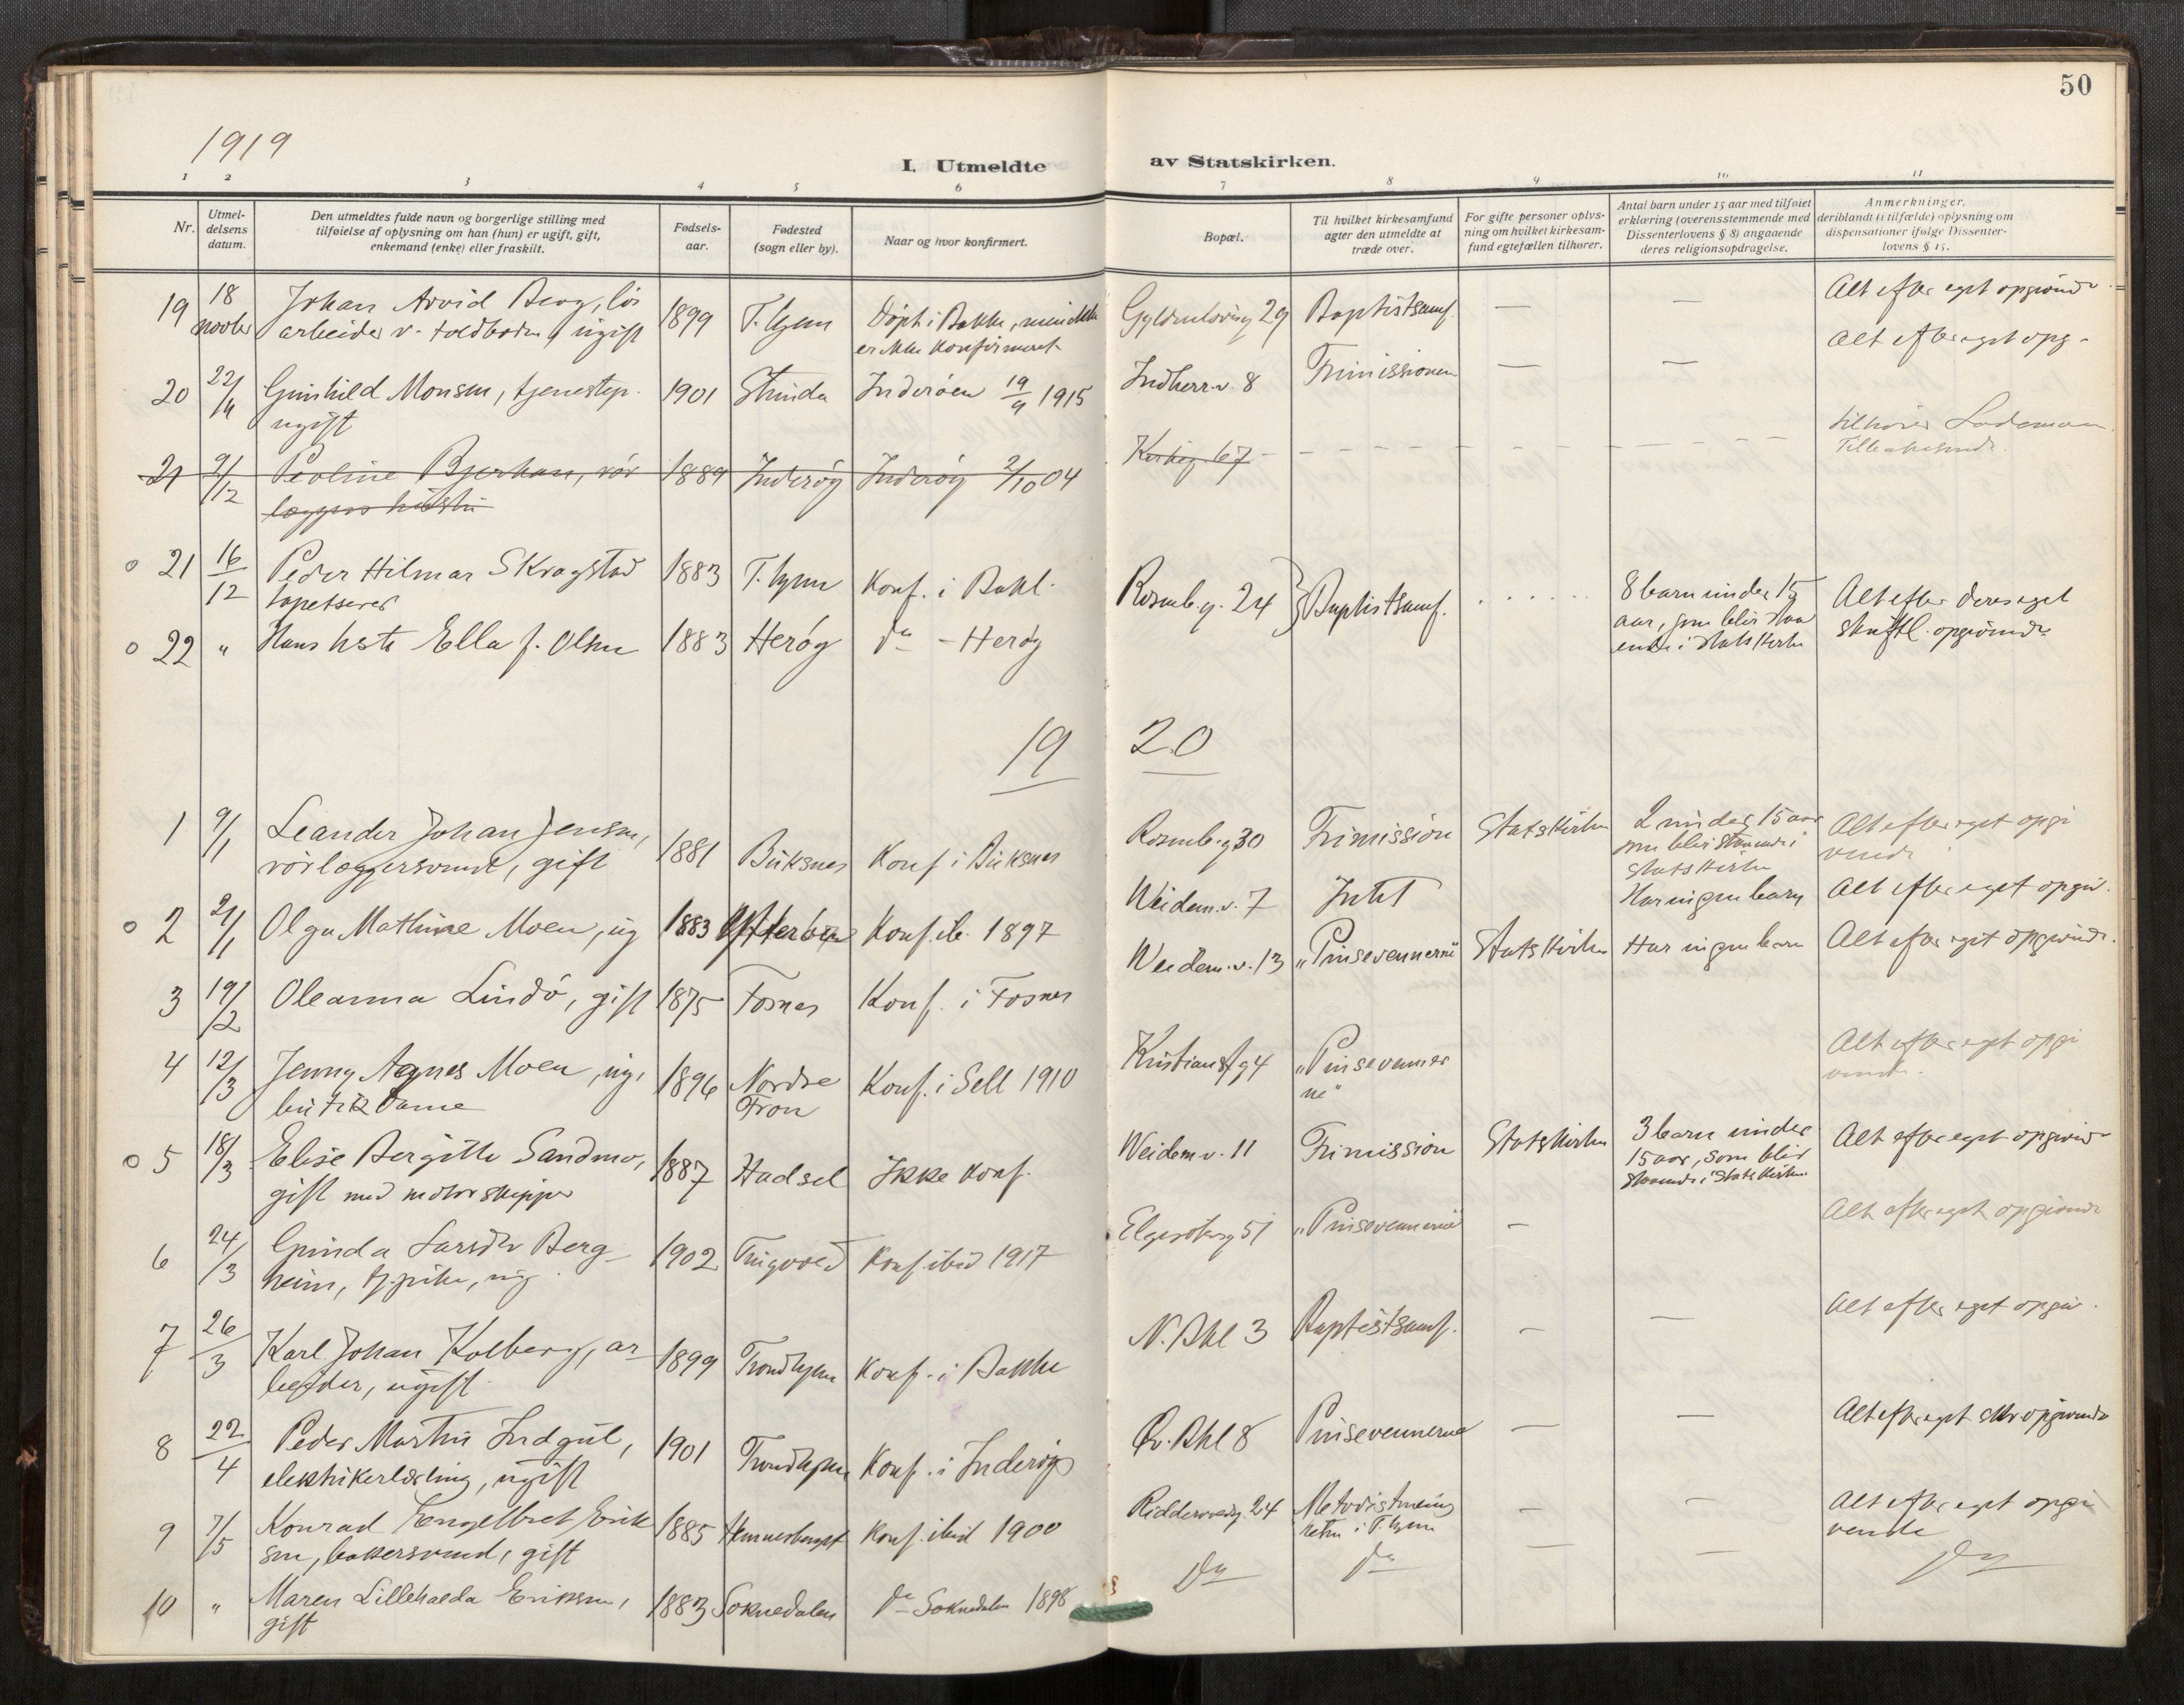 50
1919
I. Utmeldte av Statskirken.
1 2 3 4 5 6 7 8 9 10 11
Nr.
Utmel-
delsens
datum.
Den utmeldtes fulde navn og borgerlige stilling med
tilføielse af oplysning om han (hun) er ugift, gift,
enkemand (enke) eller fraskilt.
Fødsels-
aar.
Fødested
(sogn eller by).
Naar og hvor konfirmert.
Bopæl.
Til hvilket kirkesamfund
agter den utmeldte at
træde over.
For gifte personer oplys-
ning om hvilket kirkesam-
fund egtefællen tilhører.
Antal barn under 15 aar med tilføiet
erklæring (overensstemmende med
Dissenterlovens § 8) angaaende
deres religionsopdragelse.
Anmerkninger,
deriblandt (i tilfælde) oplysning om
dispensationer ifølge Dissenter-
lovens § 15.
19 18 novbr Johan Arvid Berg, løs
arbeider v. toldboden, ugift 1899 T.hjem Døpt i Bakke, men
er ikke konfirmeret Baptistsamf. — — Alt efter eget opgivende
20 22/11 Gunhild Monsen, tjenestep.
ugift 1901 Strinda Inderøen 19/9 1915 Indherr.v. 8 Frimissionen — — Alt efter eget opg.
21 9/12 Peoline Bjerkan, rør
læggers hustru 1889 Inderøy Inderøy 2/10 04 Kirkeg. 67 tilhører Lademoen
21 16/12 Peder Hilmar Skragstad
tapetserer 1883 T.hjem Konf. i Bakl. Rosenb.g. 24 Baptistsamf. 8 barn under 15
aar, som blir staa
ende i Statskirken Alt efter deres eget
skriftl. opgivende
22 " Hans hstr Ella f. Olsen 1883 Herøy do - Herøy
19 20
1 9/1 Leander Johan Jensen,
rørlæggersvend, gift 1881 Buksnes Konf. i Buksnes Rosenb.g 30 Frimission Statskirken 2 under 15 aar
som blir staaende i
Statskirken Alt efter eget opgi
vende
2 21/1 Olga Mathine Moen, ug 1883 Konf. ib. 1897 Weidem.v. 7 Intet Har ingen barn Alt efter eget opgiv.
3 19/2 Oleanna Lindö, gift 1875 Fosnes Konf. i Fosnes Weidem.v. 13 "Pinsevennerne" Statskirken Har ingen barn Alt efter eget opgivende.
4 12/3 Jenny Agnes Moen, ug,
butikdame 1896 Nordre
Fron Konf. i Sell 1910 Kristiansf.g 4 "Pinsevenner
ne" Alt efter eget opgi
vende.
5 18/3 Elise Bergitte Sandmo,
gift med motorskipper 1887 Hadsel Ikke konf. Weidem.v. 11 Frimission Statskirken 3 barn under
15 aar, som blir
staaende i Statskirken Alt efter eget opgivende
6 24/3 Gunda Larsdtr Berg-
heim, tj.pike, ug. 1902 Tingvoed Konf. ibid 1917 Elgesæterg 51 "Pinsevennerne" — Alt efter eget opgivende
7 26/3 Karl Johan Kolberg, ar
beider, ugift 1899 Trondhjem Konf. i Bakke N. Bkl 3 Baptistsamf. — — Alt efter eget opgiv.
8 22/4 Peder Martin Indgul,
elektrikerlærling, ugift 1901 Trondhjem Konf. i Inderøy Øv. Bkl 8 Pinsevennerne — — Alt efter eget skr opgivende
9 7/5 Konrad Engelbret Erik
sen, bakersvend, gift 1885 Konf. ibid 1900 Ridderv.g. 24 Metodistmenig
heten i T.hjem — — Alt efter eget opgi
vende
10 " Maren Lillehalda Eriksen,
gift 1883 Soknedalen do Soknedalen 1898 Do Do — — Do